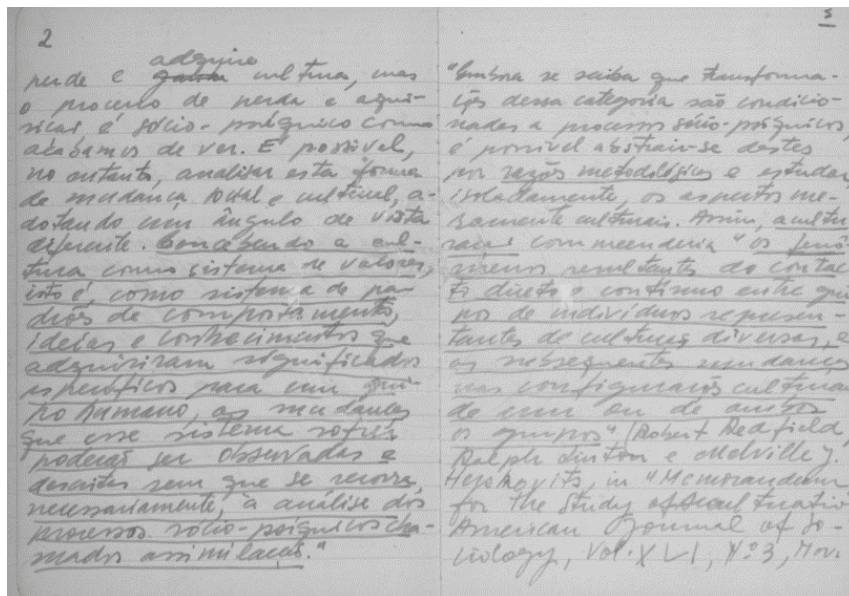 2
adquire
perde e ganha cultura, mas
o processo de perda e aqui-
sição é sócio-psíquico como
acabamos de ver. É possível,
no entanto, analisar esta forma
de mudança social e cultural, a-
dotando um ângulo de vista
diferente. Concebendo a cul-
tura como sistema de valores,
isto é, como sistema de pa-
drões de comportamento,
ideias e conhecimentos que
adquiriram significados
específicos para um gru-
po humano, as mudanças
que esse sistema sofrer
poderão ser observadas e
descritas sem que se recorra,
necessariamente, à análise dos
processos sócio-psíquicos cha-
mados assimilação."
3
"Embora se saiba que transforma-
ções dessa categoria são condicio-
nadas a processos sócio-psíquicos,
é possível abstrair-se destes
por razões metodológicas e estudar,
isoladamente, os aspectos me-
ramente culturais. Assim, acultu-
ração compreenderia "os fenô-
menos resultantes do contac-
to direto e contínuo entre gru-
pos de indivíduos represen-
tantes de culturas diversas, e
as subsequentes mudanças
nas configurações culturais
de um ou de ambos
os grupos" (Robert Redfield,
Ralph Linton e Melville J.
Herskovits, in "Memorandum
for the Study of Acculturatio
American Journal of So-
ciology, Vol. XLI, Nº 3, Nov.